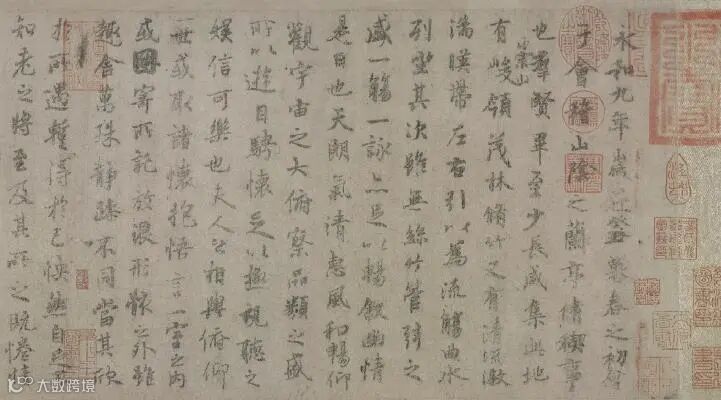 永和九年歲在癸丑暮春之初會
于會稽山陰之蘭亭脩禊事
也羣賢畢至少長咸集此地
有崇山峻領茂林脩竹又有清流激
湍暎帶左右引以為流觴曲水
列坐其次雖無絲竹管弦之
盛一觴一詠亦足以暢敘幽情
是日也天朗氣清惠風和暢仰
觀宇宙之大俯察品類之盛
所以遊目騁懷足以極視聽之
娛信可樂也夫人之相與俯仰
一世或取諸懷抱悟言一室之內
或因寄所託放浪形骸之外雖
趣舍萬殊靜躁不同當其欣
於所遇暫得於己怏然自足
知老之將至及其所之既惓情
大数跨境